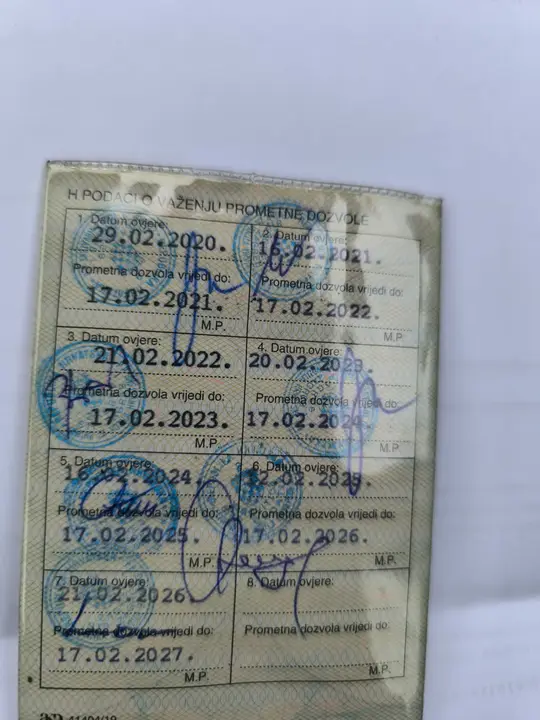 H PODACI O VAŽENJU PROMETNE DOZVOLE
1. Datum ovjere:
29.02.2020.
Prometna dozvola vrijedi do:
17.02.2021.
M.P.
2. Datum ovjere:
16.02.2021.
Prometna dozvola vrijedi do:
17.02.2022.
M.P.
3. Datum ovjere:
21.02.2022.
Prometna dozvola vrijedi do:
17.02.2023.
M.P.
4. Datum ovjere:
20.02.2023.
Prometna dozvola vrijedi do:
17.02.2024
M.P.
5. Datum ovjere:
16.02.2024.
Prometna dozvola vrijedi do:
17.02.2025.
M.P.
6. Datum ovjere:
12.02.2025.
Prometna dozvola vrijedi do:
17.02.2026.
M.P.
7. Datum ovjere
21.02.2026.
Prometna dozvola vrijedi do:
17.02.2027.
M.P.
8. Datum ovjere:
Prometna dozvola vrijedi do:
M.P.